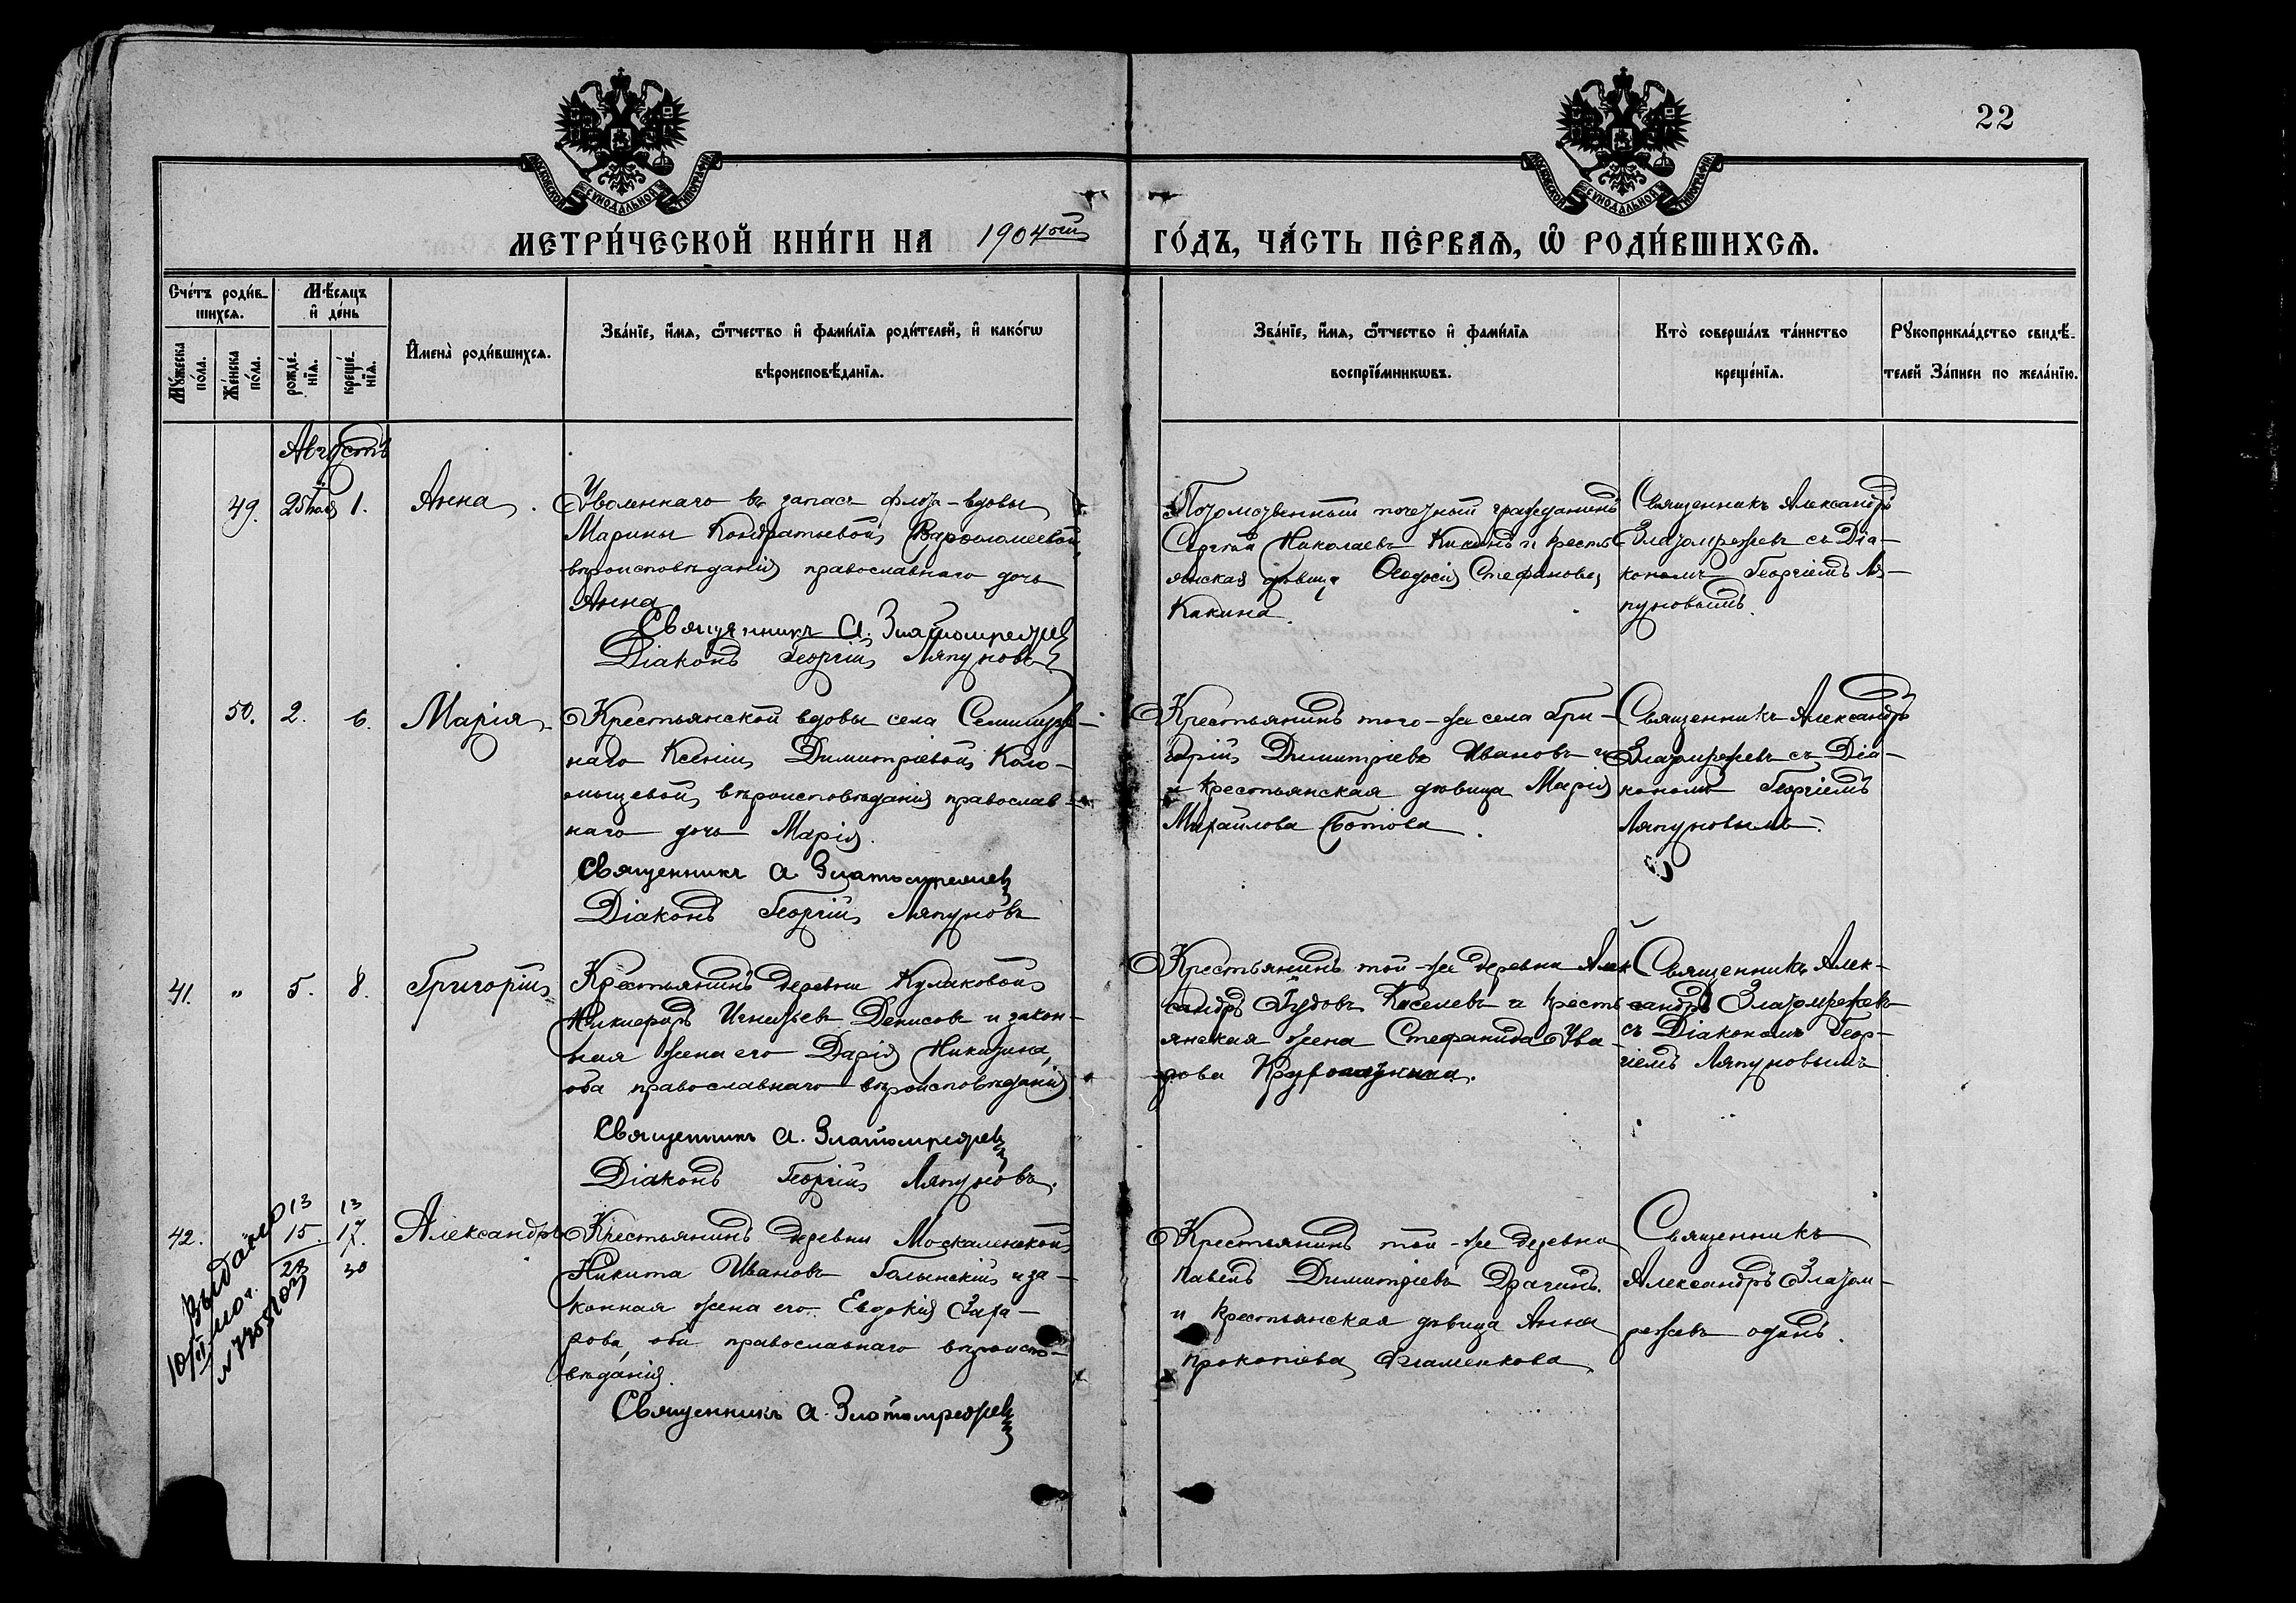 22
МОСКОВСКОЙ СУНОДАЛЬНОЙ ТИПОГРАФІИ
МОСКОВСКОЙ СУНОДАЛЬНОЙ ТИПОГРАФІИ
МЕТРИ́ЧЕСКОЙ КНИ́ГИ НА 1904ый ГО́ДЪ, ЧА́СТЬ ПЕ́РВАѦ, Ѽ РОДИ́ВШИХСѦ.
Сче́тъ роди́в-
шихсѧ.
Мꙋ́жеска по́ла.
Же́нска по́ла.
Мѣ́сѧцъ
и҆ де́нь
рожде́нїѧ.
креще́нїѧ.
И҆мена̀ роди́вшихсѧ.
Зва́нїе, и҆́мѧ, ѻ҆́тчество и҆ фами́лїѧ роди́телей, и҆ како́гѡ
вѣроисповѣ́данїѧ.
Зва́нїе, и҆́мѧ, ѻ҆́тчество и҆ фами́лїѧ
воспрїе́мникѡвъ.
Кто̀ соверша́лъ та́инство
креще́нїѧ.
Рꙋкоприкла́дство свидѣ́-
телей За́писи по жела́нїю.
Августъ
49. 25 Іюля 1. Анна
Уволеннаго въ запасъ флота вдовы
Марины Кондратьевой Варѳоломеевой
вѣроисповѣданія православнаго дочь
Анна
Священникъ А. Златомрежев
Діаконъ Георгій Ляпуновъ
Потомственный почетный гражданинъ
Сергей Николаевъ Кикинъ и кресть
янская дѣвица Ѳеодосія Стефанова
Кикина.
Священникъ Александръ
Златомрежевъ съ Діа-
кономъ Георгіемъ Ля-
пуновымъ.
50. 2. 6. Марія
Крестьянской вдовы села
наго Ксеніи Димитріевой Коло-
мыцевой вѣроисповѣданія православ-
наго дочь Марія.
Священникъ А Златомрежев
Діаконъ Георгій Ляпуновъ
Крестьянинъ того-же села Гри-
горій Димитріевъ Ивановъ и
и крестьянская дѣвица Марія
Михаилова Ботова.
Священникъ Александръ
Златомрежевъ съ Діа-
кономъ Георгіемъ
Ляпуновымъ.
41. " 5. 8. Григорій
Крестьянинъ деревни Куликовой
Никифоръ Игнатьевъ Денисовъ и закон-
ная жена его Дарія Никитина,
оба православнаго вѣроисповѣданія
Священникъ А. Златомрежев
Діаконъ Георгій Ляпуновъ.
Крестьянинъ той-же деревни Алек
сандръ Киселевъ и кресть
янская жена Стефанида Ува-
рова
Священникъ Алек-
сандръ Златомрежевъ
съ Діакономъ Геор-
гіемъ Ляпуновымъ
13 13
42. 15. 17. Александръ
23 30
Выдано
Крестьянинъ деревни Москаленской
Никита Ивановъ Голынскій и за-
конная жена его Евдокія Заха-
рова, оба православнаго вѣроиспо-
вѣданія.
Священникъ А. Златомрежев
Крестьянинъ той-же деревни
Павелъ Димитріевъ Драгинъ.
и крестьянская дѣвица Анна
Прокопіева Фламенкова
Священникъ
Александръ Златом-
режевъ одинъ.